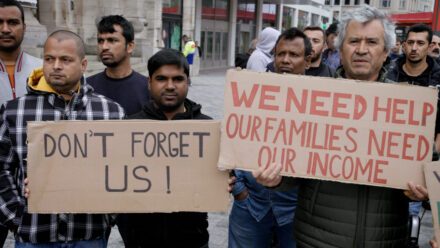 DON'T FORGET
US!
WE NEED HELP
OUR FAMILIES NEED
OUR INCOME